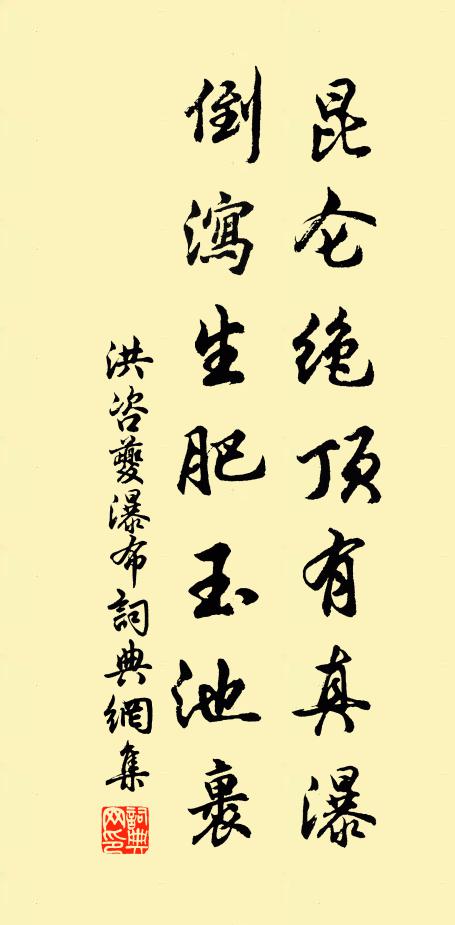 昆仑绝顶有真瀑
倒瀉生肥玉池裏
洪咨夔瀑布詞典網集
詞典網印